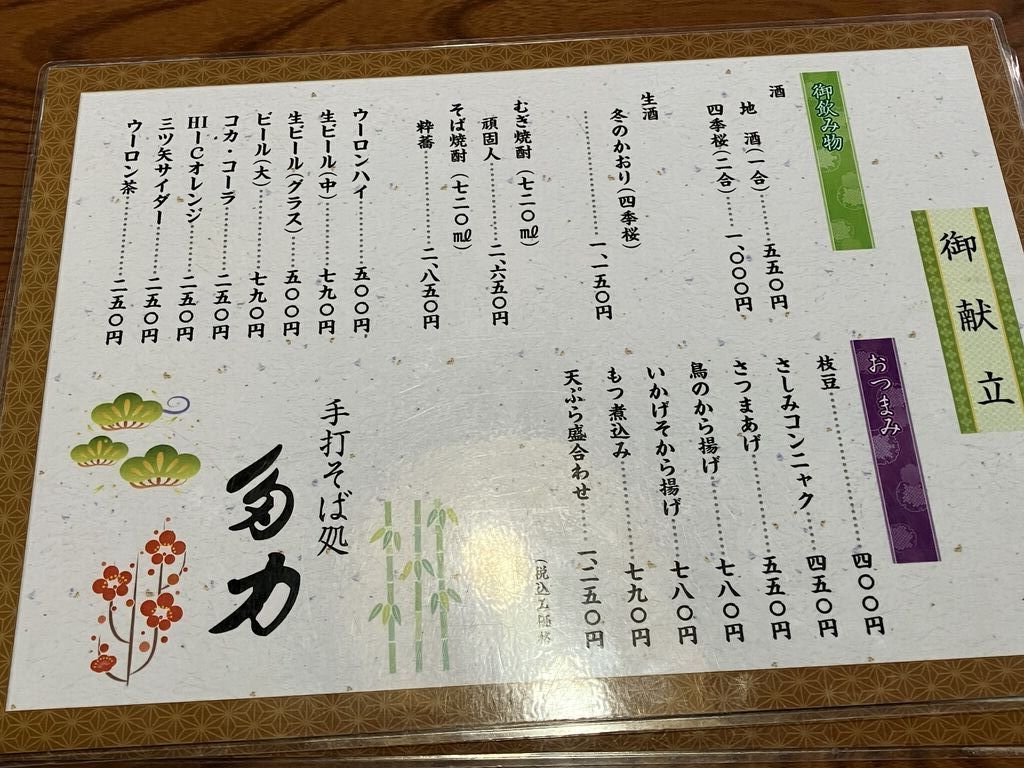 御献立
御飲み物
酒
地 酒(一合)………五五〇円
四季桜(二合)……一、〇〇〇円
生酒
冬のかおり(四季桜)
………………一、一五〇円
むぎ焼酎(七二〇㎖)
頑固人…………二、六五〇円
そば焼酎(七二〇㎖)
粋蕎……………二、八五〇円
ウーロンハイ………五〇〇円
生ビール(中)………七九〇円
生ビール(グラス)…五〇〇円
ビール(大)…………七九〇円
コカ・コーラ………二五〇円
HI-Cオレンジ……二五〇円
三ツ矢サイダー……二五〇円
ウーロン茶…………二五〇円
おつまみ
枝豆…………………四〇〇円
さしみコンニャク…四五〇円
さつまあげ…………五五〇円
鳥のから揚げ………七八〇円
いかげそから揚げ…七八〇円
もつ煮込み…………七九〇円
天ぷら盛合わせ…一、二五〇円
(税込み価格)
手打そば処